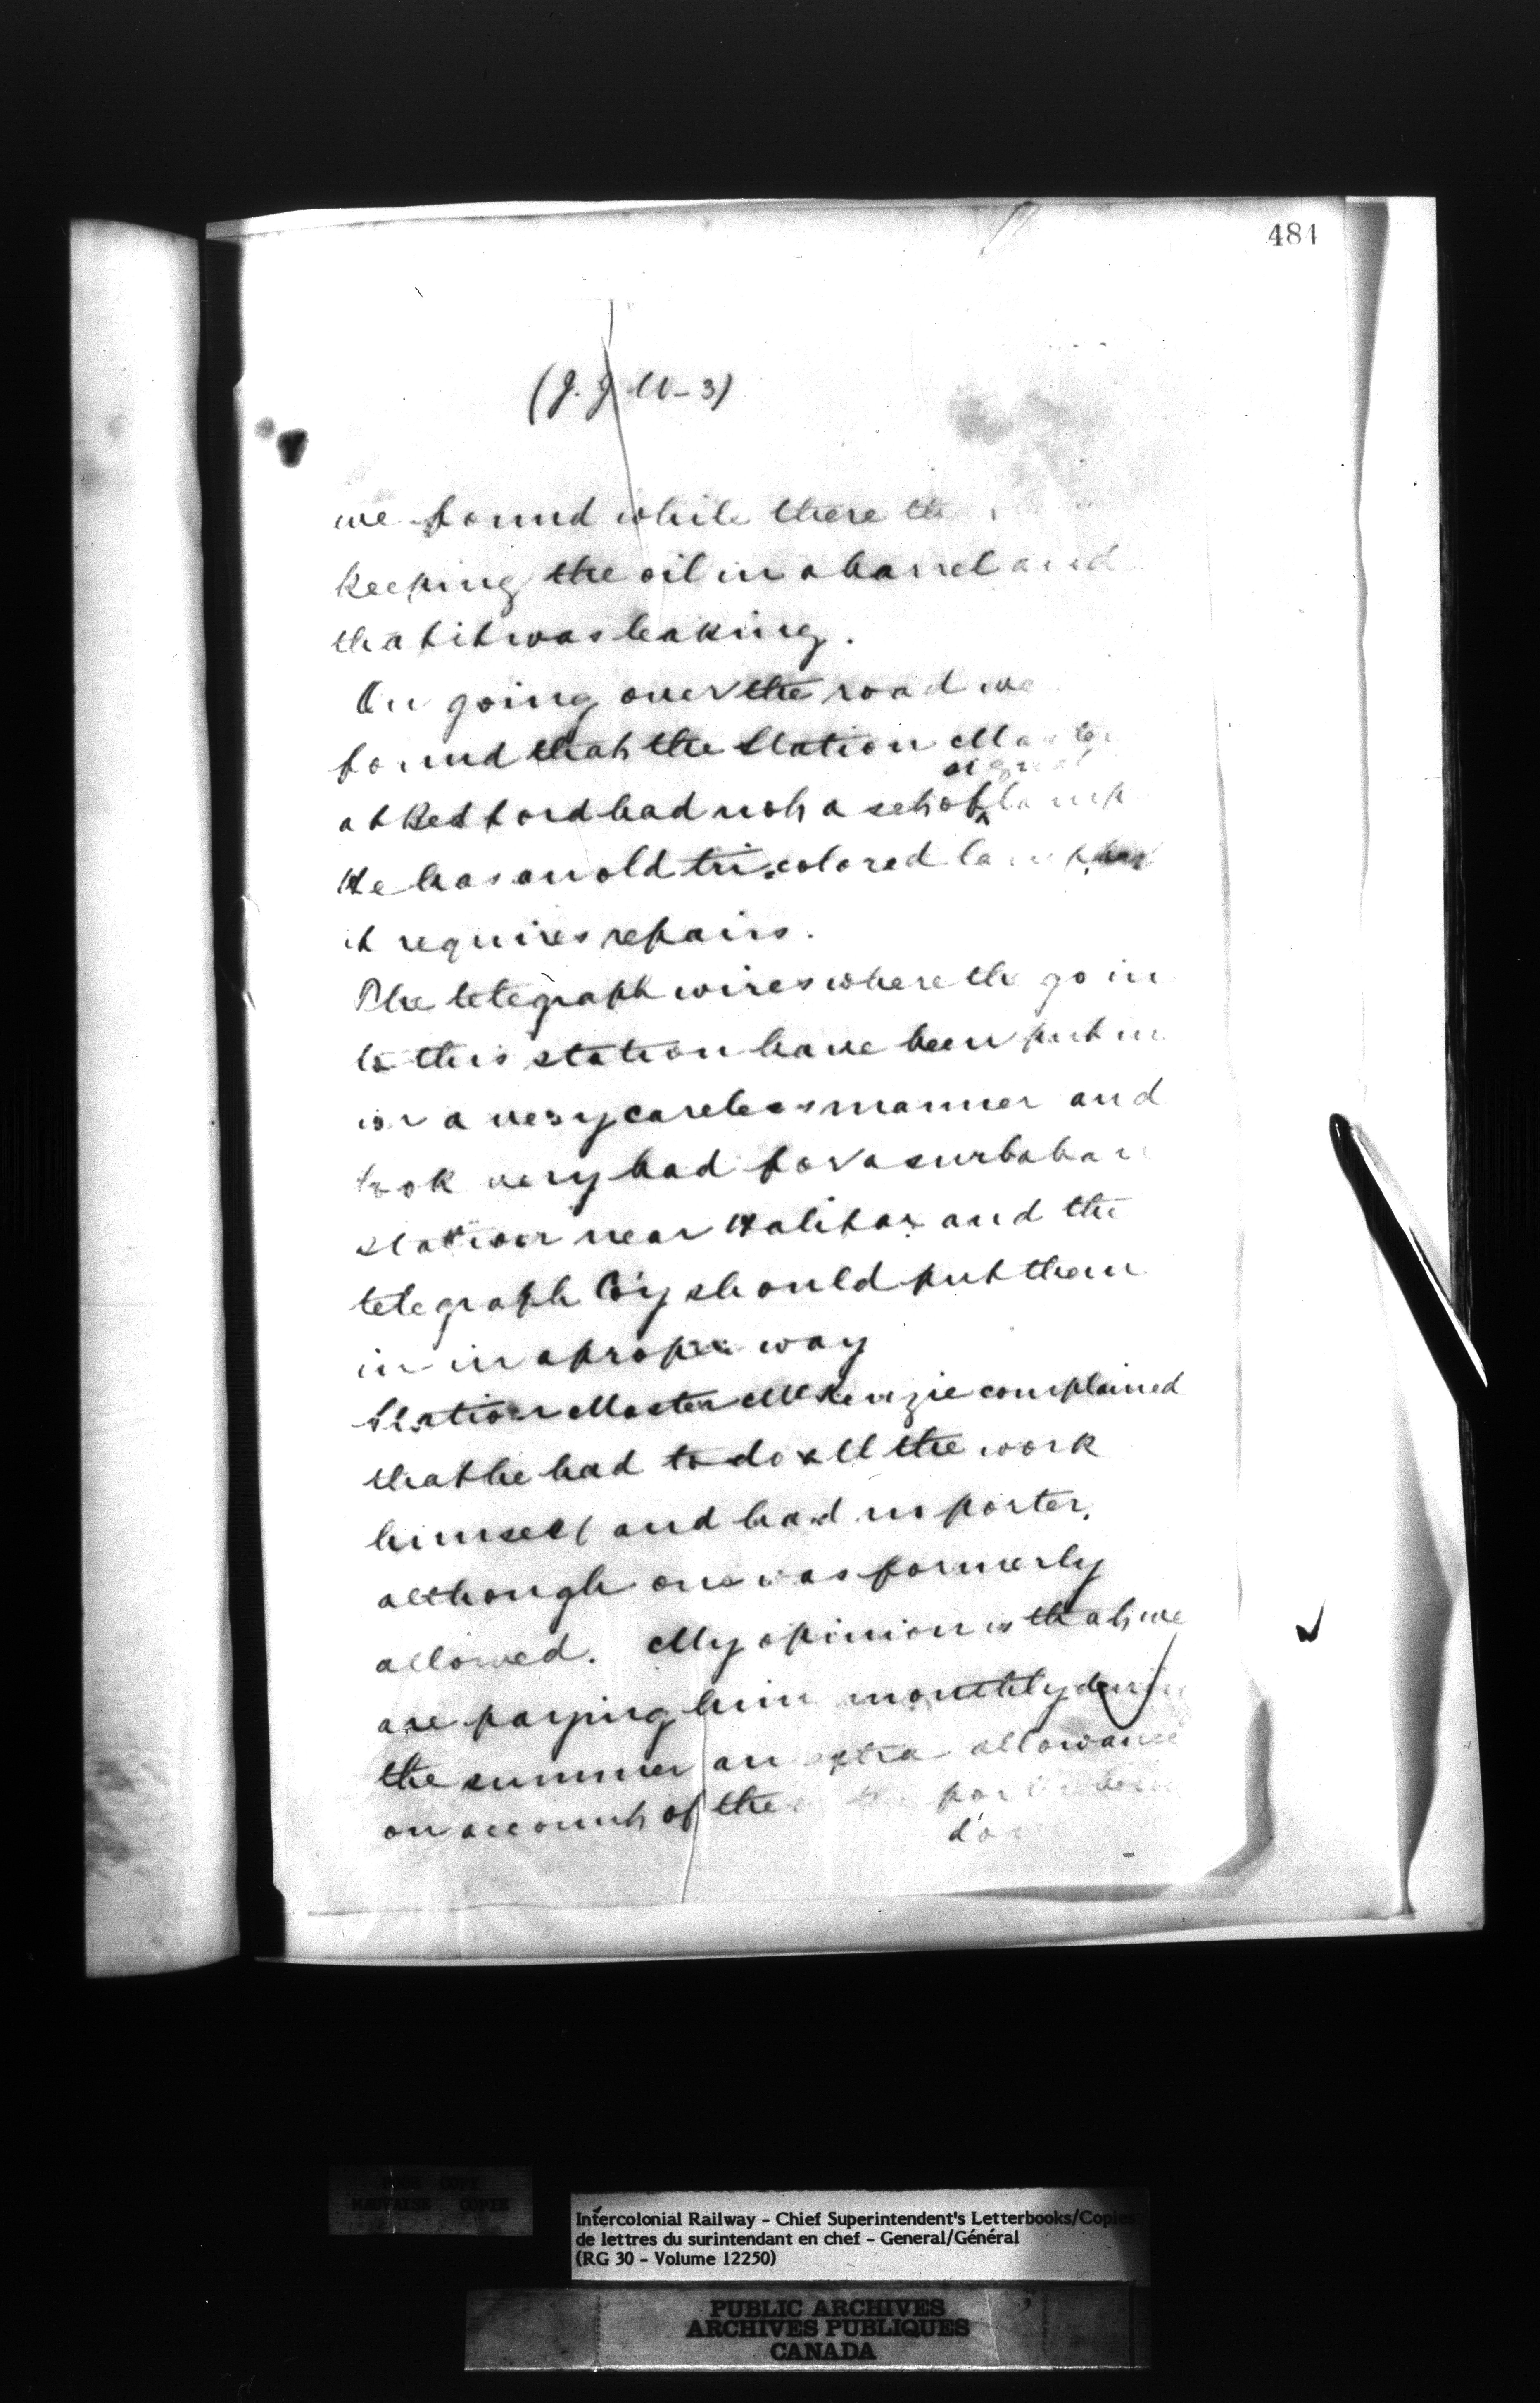 481
(J. J. W - 3)
we found while there
keeping the oil in a barrel and
that it was leaking.
On going over the road we
found that the Station Master
signal
at Bedford had not a set of lamps
He has an old tri-colored lamp, but
it requires repairs.
The telegraph wires where the go in
to this station have been put in
in a very careless manner and
look very bad for a surbaban
station near Halifax and the
telegraph Co'y should put them
in in a proper way
Station Master McKenzie complained
that he had to do all the work
himself and had no porter,
although one was formerly
allowed. My opinion is that we
are paying him monthly during
the summer an extra allowance
on account of the
POOR COPY
MAUVAISE COPIE
Intercolonial Railway - Chief Superintendent's Letterbooks/Copies
de lettres du surintendant en chef - General/Général
(RG 30 - Volume 12250)
PUBLIC ARCHIVES
ARCHIVES PUBLIQUES
CANADA